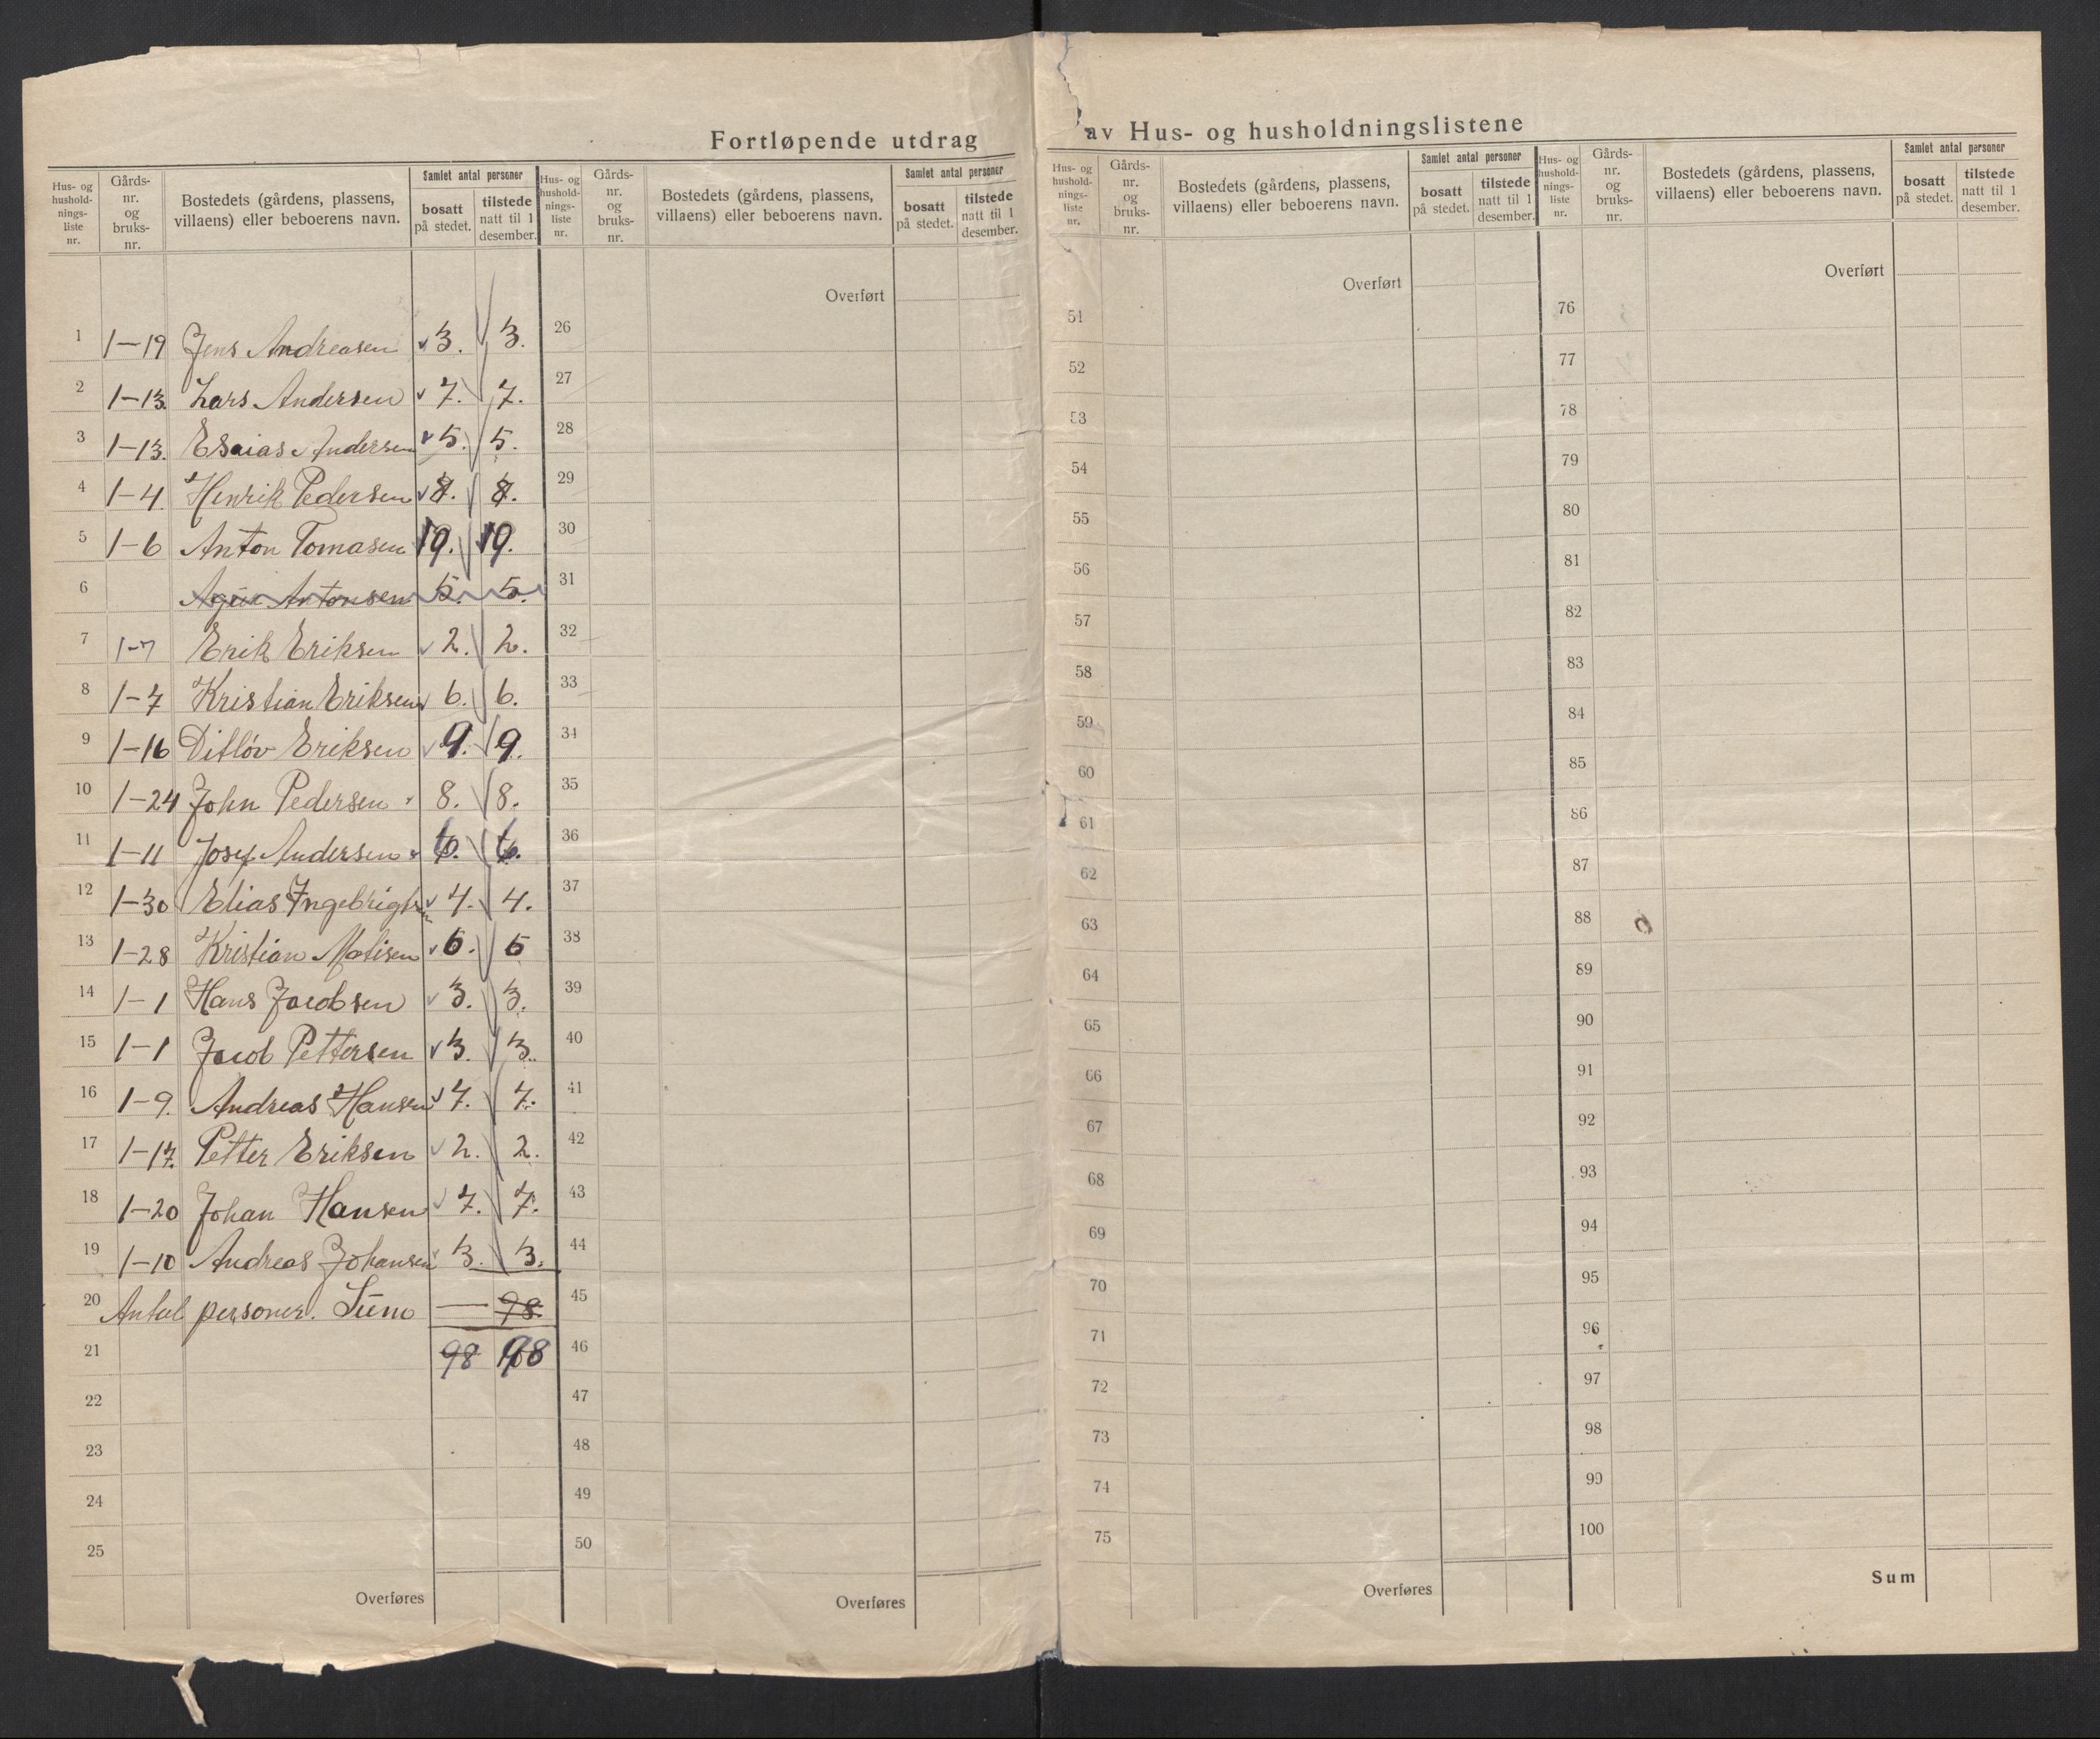 Fortløpende utdrag av Hus- og husholdningslistene
Hus- og hushold-nings-liste nr. Gårds-nr. og bruks-nr. Bostedets (gårdens, plassens, villaens) eller beboerens navn. Samlet antal personer bosatt på stedet. tilstede natt til 1 desember.
1 1-19 Jens Andreasen 3. 3.
2 1-13. Lars Andersen 7. 7.
3 1-13. Esaias Andersen 5. 5.
4 1-4. Henrik Pedersen 8. 8.
5 1-6 Anton Tomasen 19. 19.
6 Antonsen 5. 5.
7 1-7 Erik Eriksen 2. 2.
8 1-7 Kristian Eriksen 6. 6.
9 1-16 Ditløv Eriksen 9. 9.
10 1-24 John Pedersen 8. 8.
11 1-11 Josef Andersen 6. 6.
12 1-30 Elias Ingebrigtsen 4. 4.
13 1-28 Kristian Matisen 5. 5
14 1-1 Hans Jacobsen 3. 3.
15 1-1 Jacob Pettersen 3. 3.
16 1-9. Andreas Hansen 7. 7.
17 1-17. Petter Eriksen 2. 2.
18 1-20 Johan Hansen 7. 7.
19 1-10 Andreas Johansen 3. 3.
20 Antal personer. Sum — 98.
21 98 98
22
23
24
25
Overføres
Hus- og hushold-nings-liste nr. Gårds-nr. og bruks-nr. Bostedets (gårdens, plassens, villaens) eller beboerens navn. Samlet antal personer bosatt på stedet. tilstede natt til 1 desember.
Overført
26
27
28
29
30
31
32
33
34
35
36
37
38
39
40
41
42
43
44
45
46
47
48
49
50
Overføres
Hus- og hushold-nings-liste nr. Gårds-nr. og bruks-nr. Bostedets (gårdens, plassens, villaens) eller beboerens navn. Samlet antal personer bosatt på stedet. tilstede natt til 1 desember.
Overført
51
52
53
54
55
56
57
58
59
60
61
62
63
64
65
66
67
68
69
70
71
72
73
74
75
Overføres
Hus- og hushold-nings-liste nr. Gårds-nr. og bruks-nr. Bostedets (gårdens, plassens, villaens) eller beboerens navn. Samlet antal personer bosatt på stedet. tilstede natt til 1 desember.
Overført
76
77
78
79
80
81
82
83
84
85
86
87
88
89
90
91
92
93
94
95
96
97
98
99
100
Sum